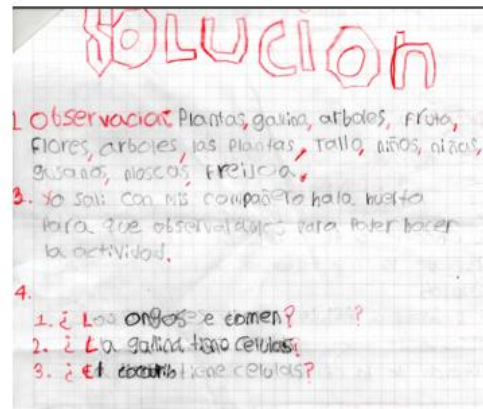 SOLUCION
1 Observacion: Plantas, gallina, arboles, fruta,
flores, arboles, las plantas, tallo, niños, niñas,
gusanos, moscas, freijoa.
3. Yo sali con mis compañero hala huerto
Para que observaramos para Poder hacer
la actividad.
4.
1. ¿ Los ongos e comen? ?
2. ¿ La gallina tiene celulas?
3. ¿ El tiene celulas?